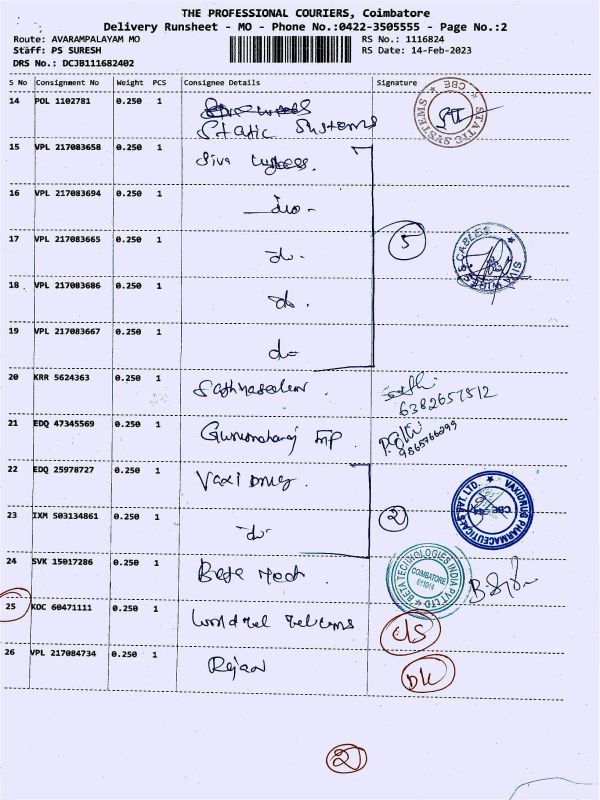 THE PROFESSIONAL COURIERS, Coimbatore
Delivery Runsheet - MO - Phone No.:0422-3505555 - Page No.:2
Route: AVARAMPALAYAM MO RS No.: 1116824
Staff: PS SURESH RS Date: 14-Feb-2023
DRS No.: DCJB111682402
S No Consignment No Weight PCS Consignee Details Signature
14 POL 1102781 0.250 1 Static Systems
STATIC SYSTEMS CBE
15 VPL 217083658 0.250 1 Siva
16 VPL 217083694 0.250 1 do -
17 VPL 217083665 0.250 1 do -
5
SIVA WIRES & CABLES
18 VPL 217083686 0.250 1 do -
19 VPL 217083667 0.250 1 do
20 KRR 5624363 0.250 1
6382657512
21 EDQ 47345569 0.250 1
9865766299
22 EDQ 25978727 0.250 1 Vaxi Drug
2
VAXIDRUG PHARMACEUTICALS PVT. LTD. CBE
23 IXM 503134861 0.250 1 do -
24 SVK 15017286 0.250 1 Beta Tech
BETA TECHNOLOGIES INDIA PVT LTD
COIMBATORE
25 KOC 60471111 0.250 1
26 VPL 217084734 0.250 1 Rajan
DK
2